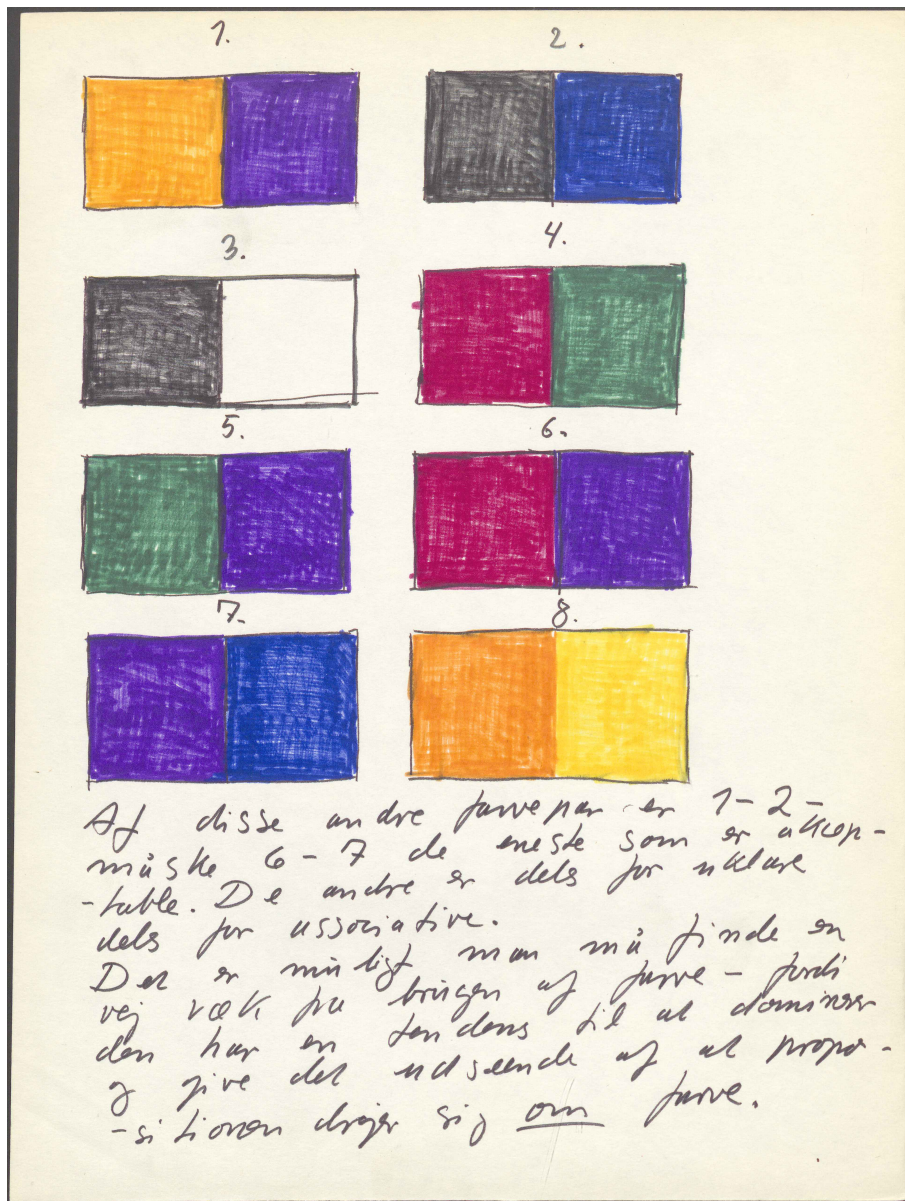 1.
2.
3.
4.
5.
6.
7.
8.
Af disse andre farvepar er 1-2-
måske 6-7 de eneste som er akcep-
-table. De andre er dels for uklare
dels for associative.
Det er muligt man må finde en
vej væk fra brugen af farve - fordi
den har en tendens til at dominere
og give det udseende af at propo-
-sitionen drejer sig om farve.